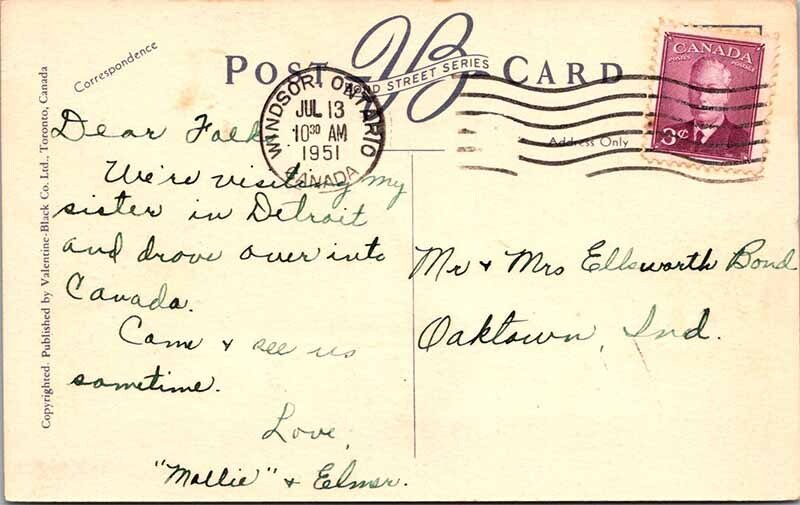 Correspondence
POST CARD
VB
BOND STREET SERIES
WINDSOR, ONTARIO
JUL 13
10 30 AM
1951
CANADA
CANADA
POSTES POSTAGE
3¢
Address Only
Dear Folk
We're visiting my
sister in Detroit
and drove over into
Canada.
Come & see us
sometime.
Love,
"Mollie" & Elmer.
Mr & Mrs Ellsworth Bond
Oaktown, Ind.
Copyrighted. Published by Valentine-Black Co. Ltd., Toronto, Canada